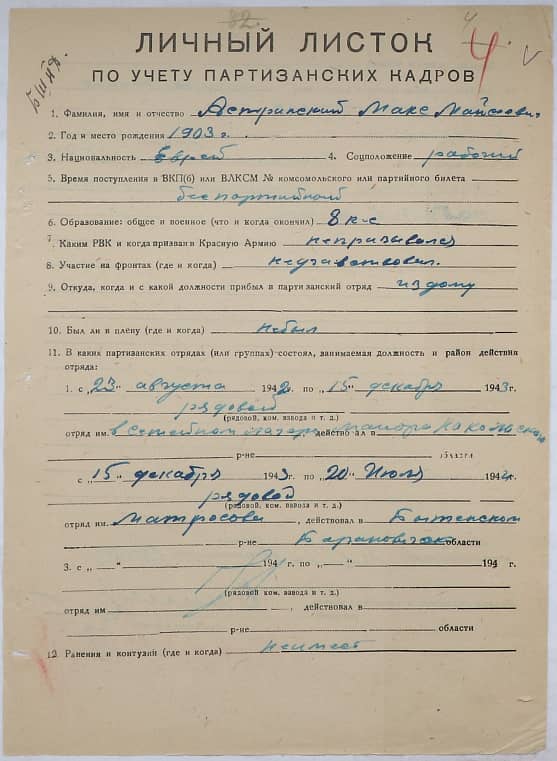 82.
4
4 V
БШПД.
ЛИЧНЫЙ ЛИСТОК
ПО УЧЕТУ ПАРТИЗАНСКИХ КАДРОВ
1. Фамилия, имя и отчество Астринский Макс
2. Год и место рождения 1903 г.
3. Национальность Еврей 4. Соцположение рабочий
5. Время поступления в ВКП(б) или ВЛКСМ № комсомольского или партийного билета
беспартийный
6. Образование: общее и военное (что и когда окончил) 8 к-с
7. Каким РВК и когда призван в Красную Армию непризывался
8. Участие на фронтах (где и когда) неучавствовал.
9. Откуда, когда и с какой должности прибыл в партизанский отряд из дому
10. Был ли в плену (где и когда) небыл
11. В каких партизанских отрядах (или группах) состоял, занимаемая должность и район действия
отряда:
1. с „23" августа 1942 г. по „15" декабря 1943 г.
рядовой
(рядовой, ком. взвода и т. д.)
отряд им. в семейном лагере, действовал в майора
р-не области
с „15" декабря 1943 г. по „20" Июля 1944 г.
рядовой
(рядовой, ком. взвода и т. д.)
отряд им. Матросова, действовал в Бытенском
р-не Барановичск области
3. с „—" 194 г. по „—" 194 г.
(рядовой ком. взвода и т. д.)
отряд им , действовал в
р-не области
12. Ранения и контузии (где и когда) неимеет